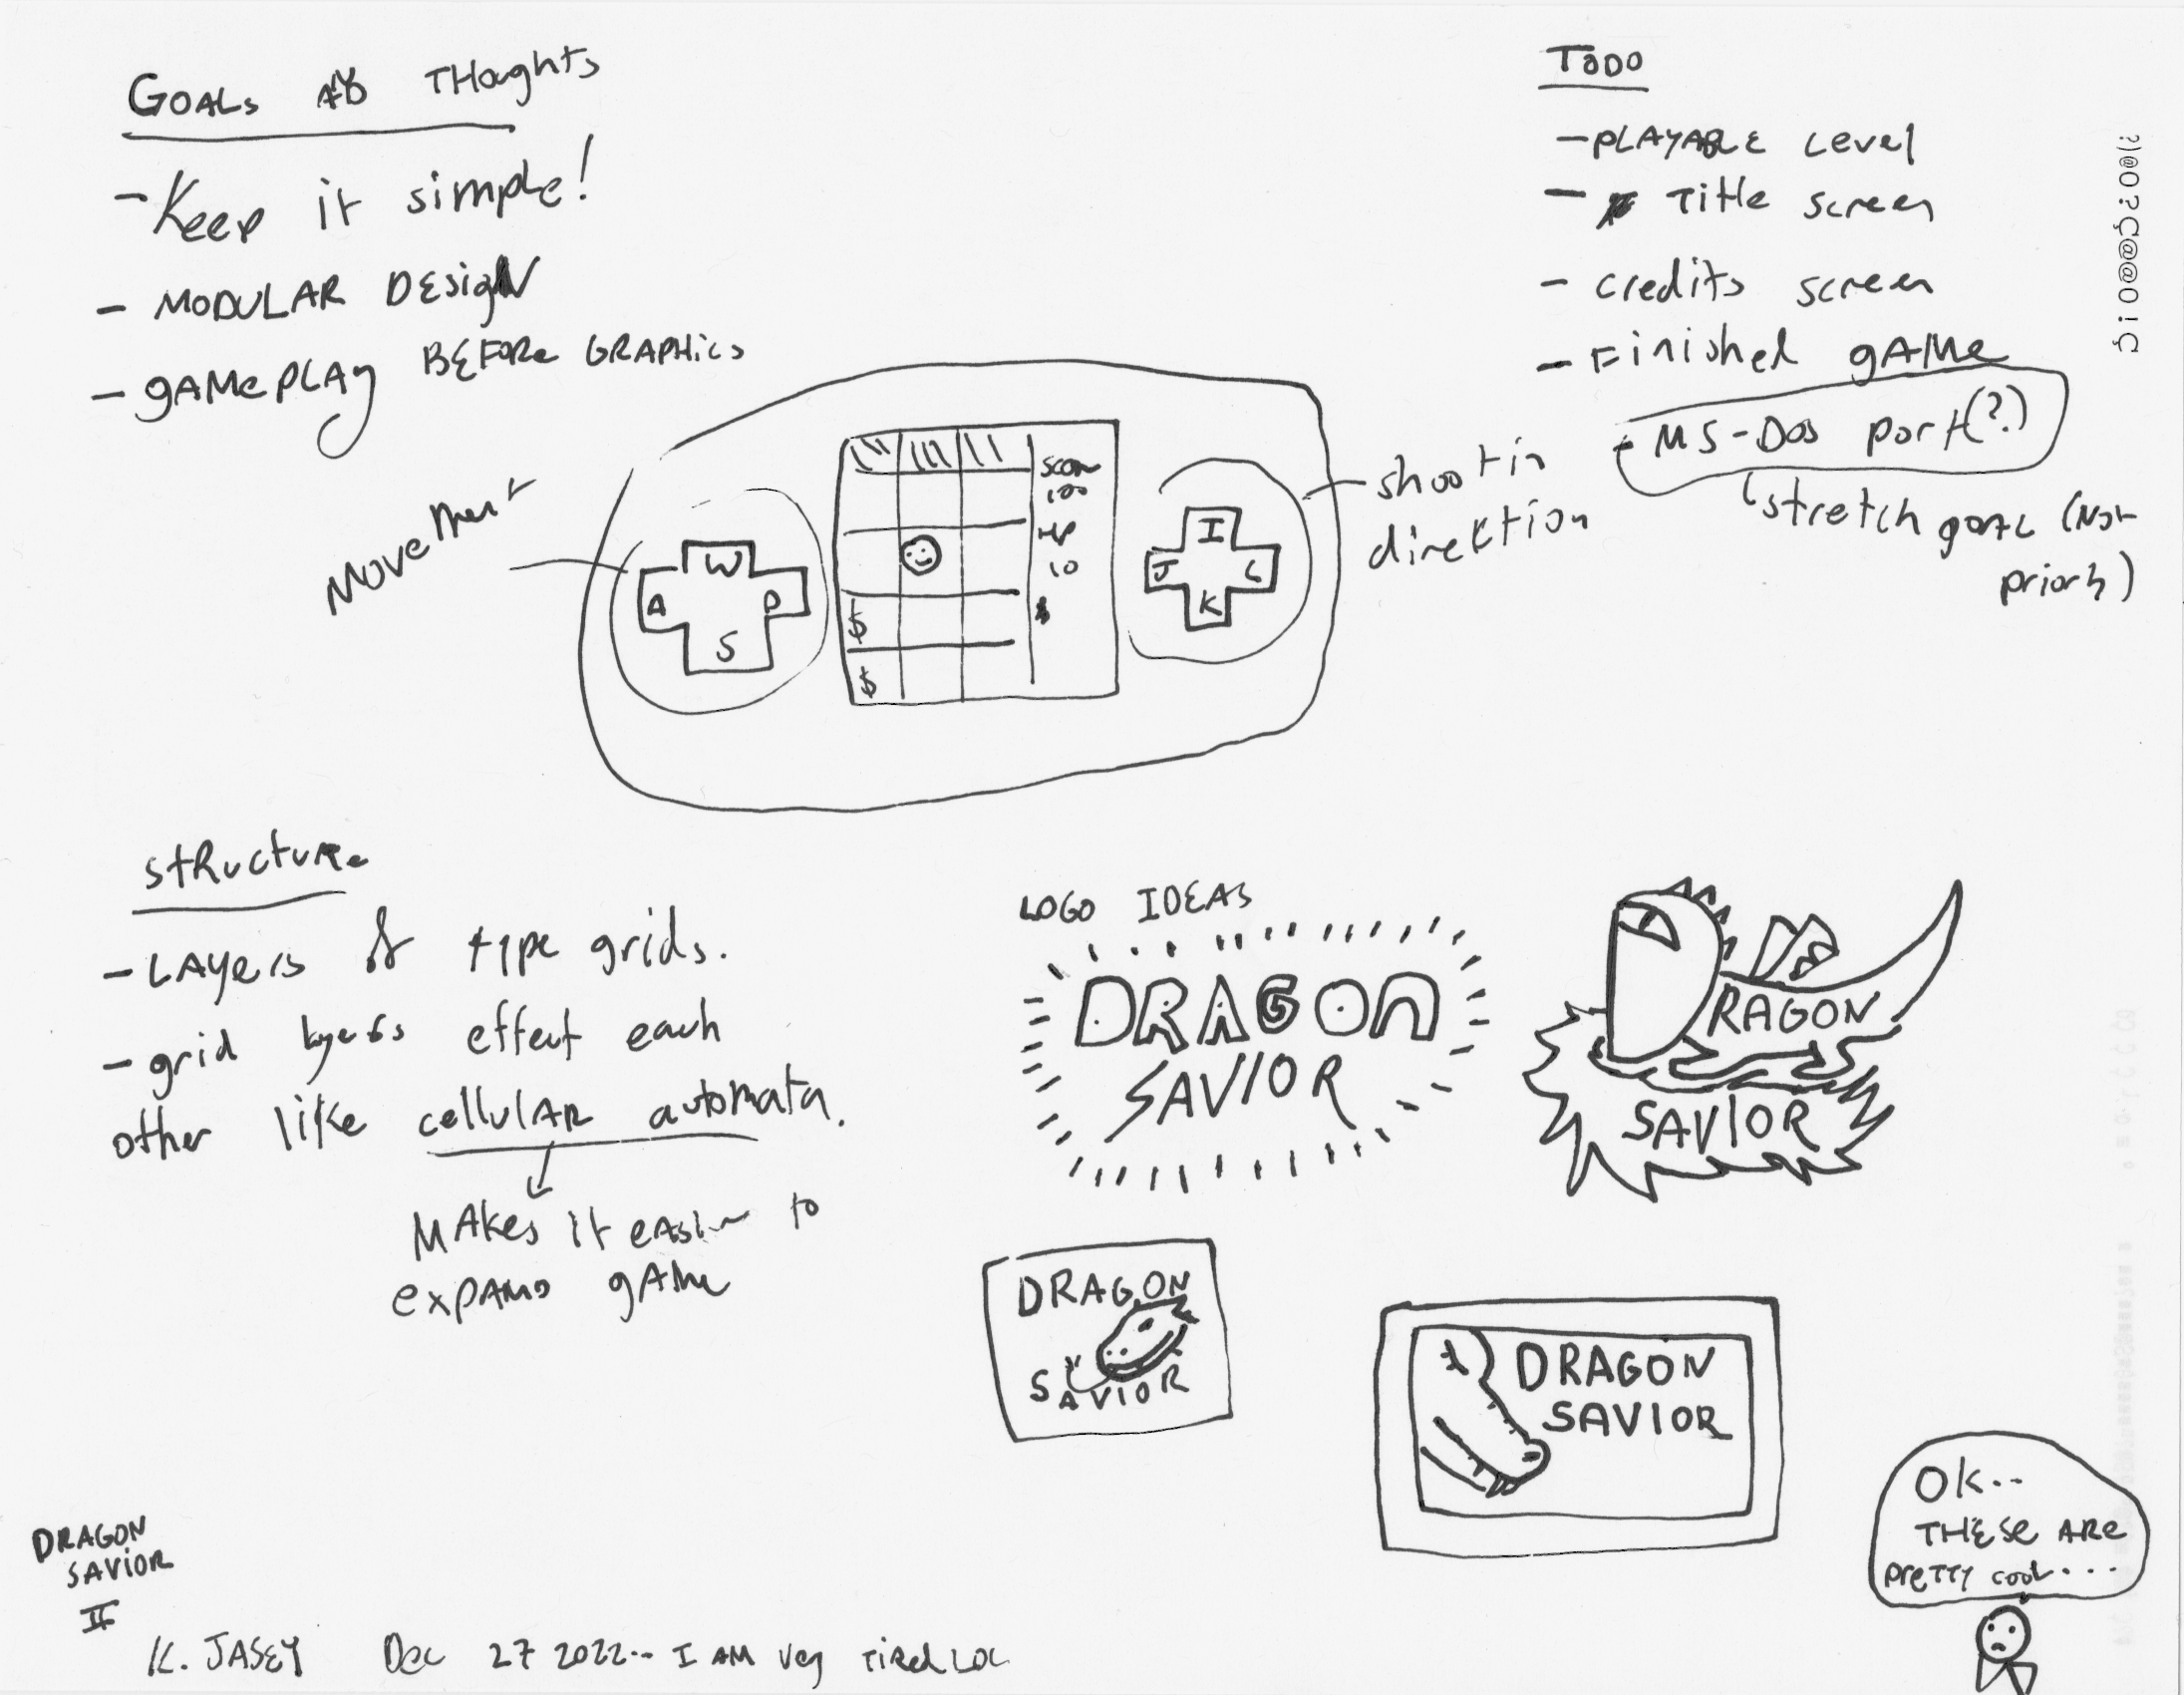 GOALS AND THoughts
- Keep it simple!
- MODULAR DESIGN
- gAMePLAy BEFORe GRAPHics
TODO
- PLAYABLE Level
- Title screen
- credits screen
- Finished gAMe
- MS-DOS port(?)
stretch goal (Not
priority)
Movement
W
A
D
S
Score
100
HP
10
$
$
I
J
L
K
shoot in
direktion
structure
- LAyers of type grids.
- grid layers effect each
other like cellulAR automata.
MAkes it easier to
expAND gAMe
LOGO IDEAS
DRAGON
SAVIOR
RAGON
SAVIOR
DRAGON
SAVIOR
DRAGON
SAVIOR
OK..
THESE ARE
pretty cool....
DRAGON
SAVIOR
II
K. JASEY Dec 27 2022... I AM very tired LOL